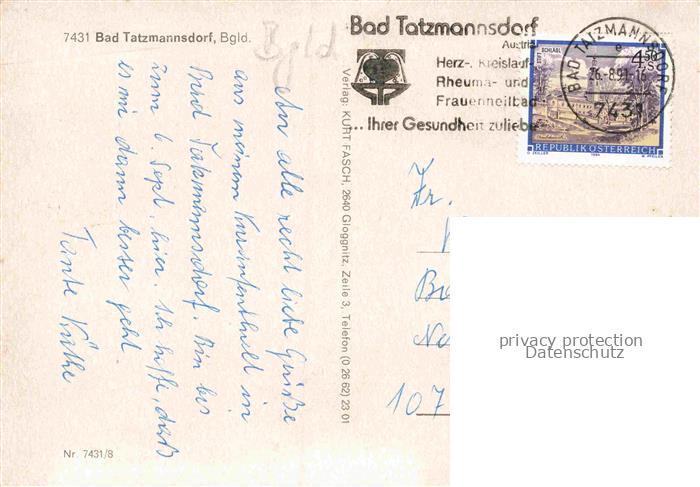 7431 Bad Tatzmannsdorf, Bgld.
Bgld
Bad Tatzmannsdorf
Austria
Herz-, Kreislauf-
Rheuma- und
Frauenheilbad
... Ihrer Gesundheit zuliebe
BAD TATZMANNSDORF
26.-8.91-16
e
7431
STIFT SCHLÄGL
4 50
S
REPUBLIK ÖSTERREICH
O. ZEILLER 1984 W. PFEILER
An alle recht liebe Grüße
aus meinem Kuraufenthalt in
Bad Tatzmannsdorf. Bin bis
zum 6. Sept. hier. Ich hoffe, daß
es mir dann besser geht.
Tante Käthe
Verlag: KURT FASCH, 2640 Gloggnitz, Zeile 3, Telefon (0 26 62) 23 01
Fr.
107
privacy protection
Datenschutz
Nr. 7431/8